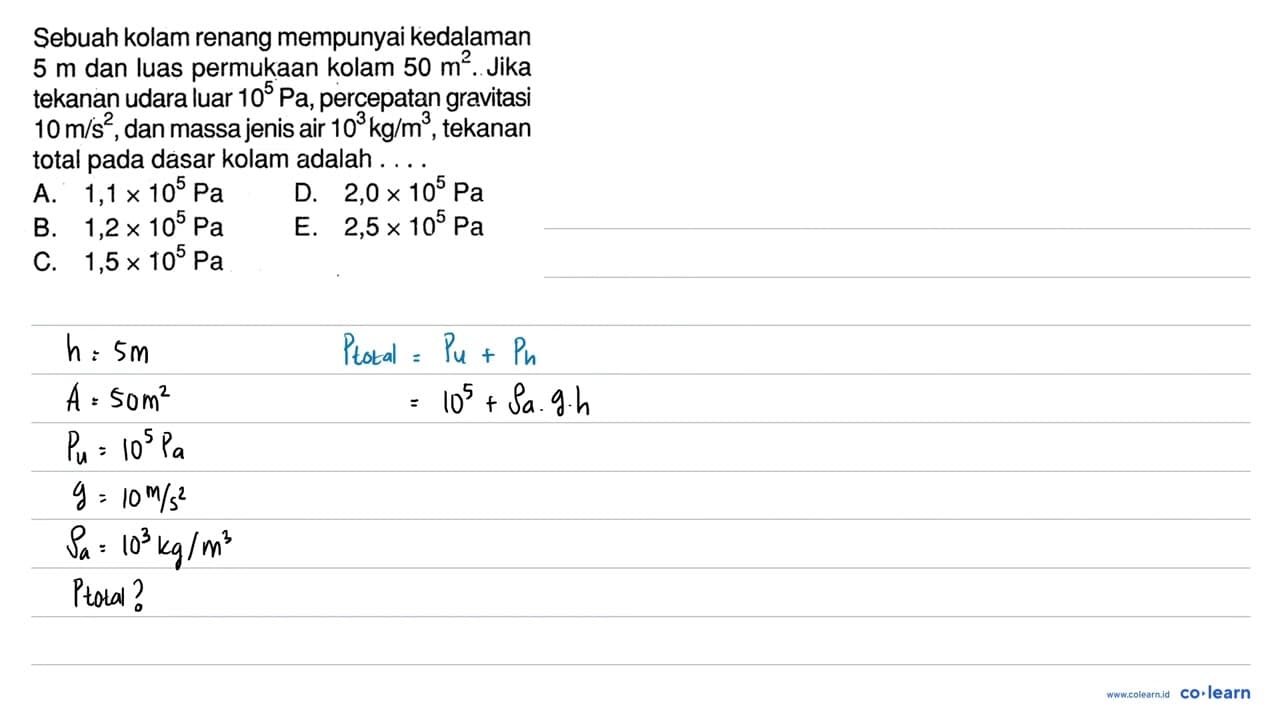 Sebuah kolam renang mempunyai kedalaman
5 m dan luas permukaan kolam 50 m². Jika
tekanan udara luar 10⁵ Pa, percepatan gravitasi
10 m/s², dan massa jenis air 10³ kg/m³, tekanan
total pada dasar kolam adalah . . . .
A. 1,1 × 10⁵ Pa D. 2,0 × 10⁵ Pa
B. 1,2 × 10⁵ Pa E. 2,5 × 10⁵ Pa
C. 1,5 × 10⁵ Pa
h = 5m
A = 50m²
Pu = 10⁵ Pa
g = 10 m/s²
ρa = 10³ kg/m³
Ptotal?
Ptotal = Pu + Ph
= 10⁵ + ρa . g . h
www.colearn.id co·learn